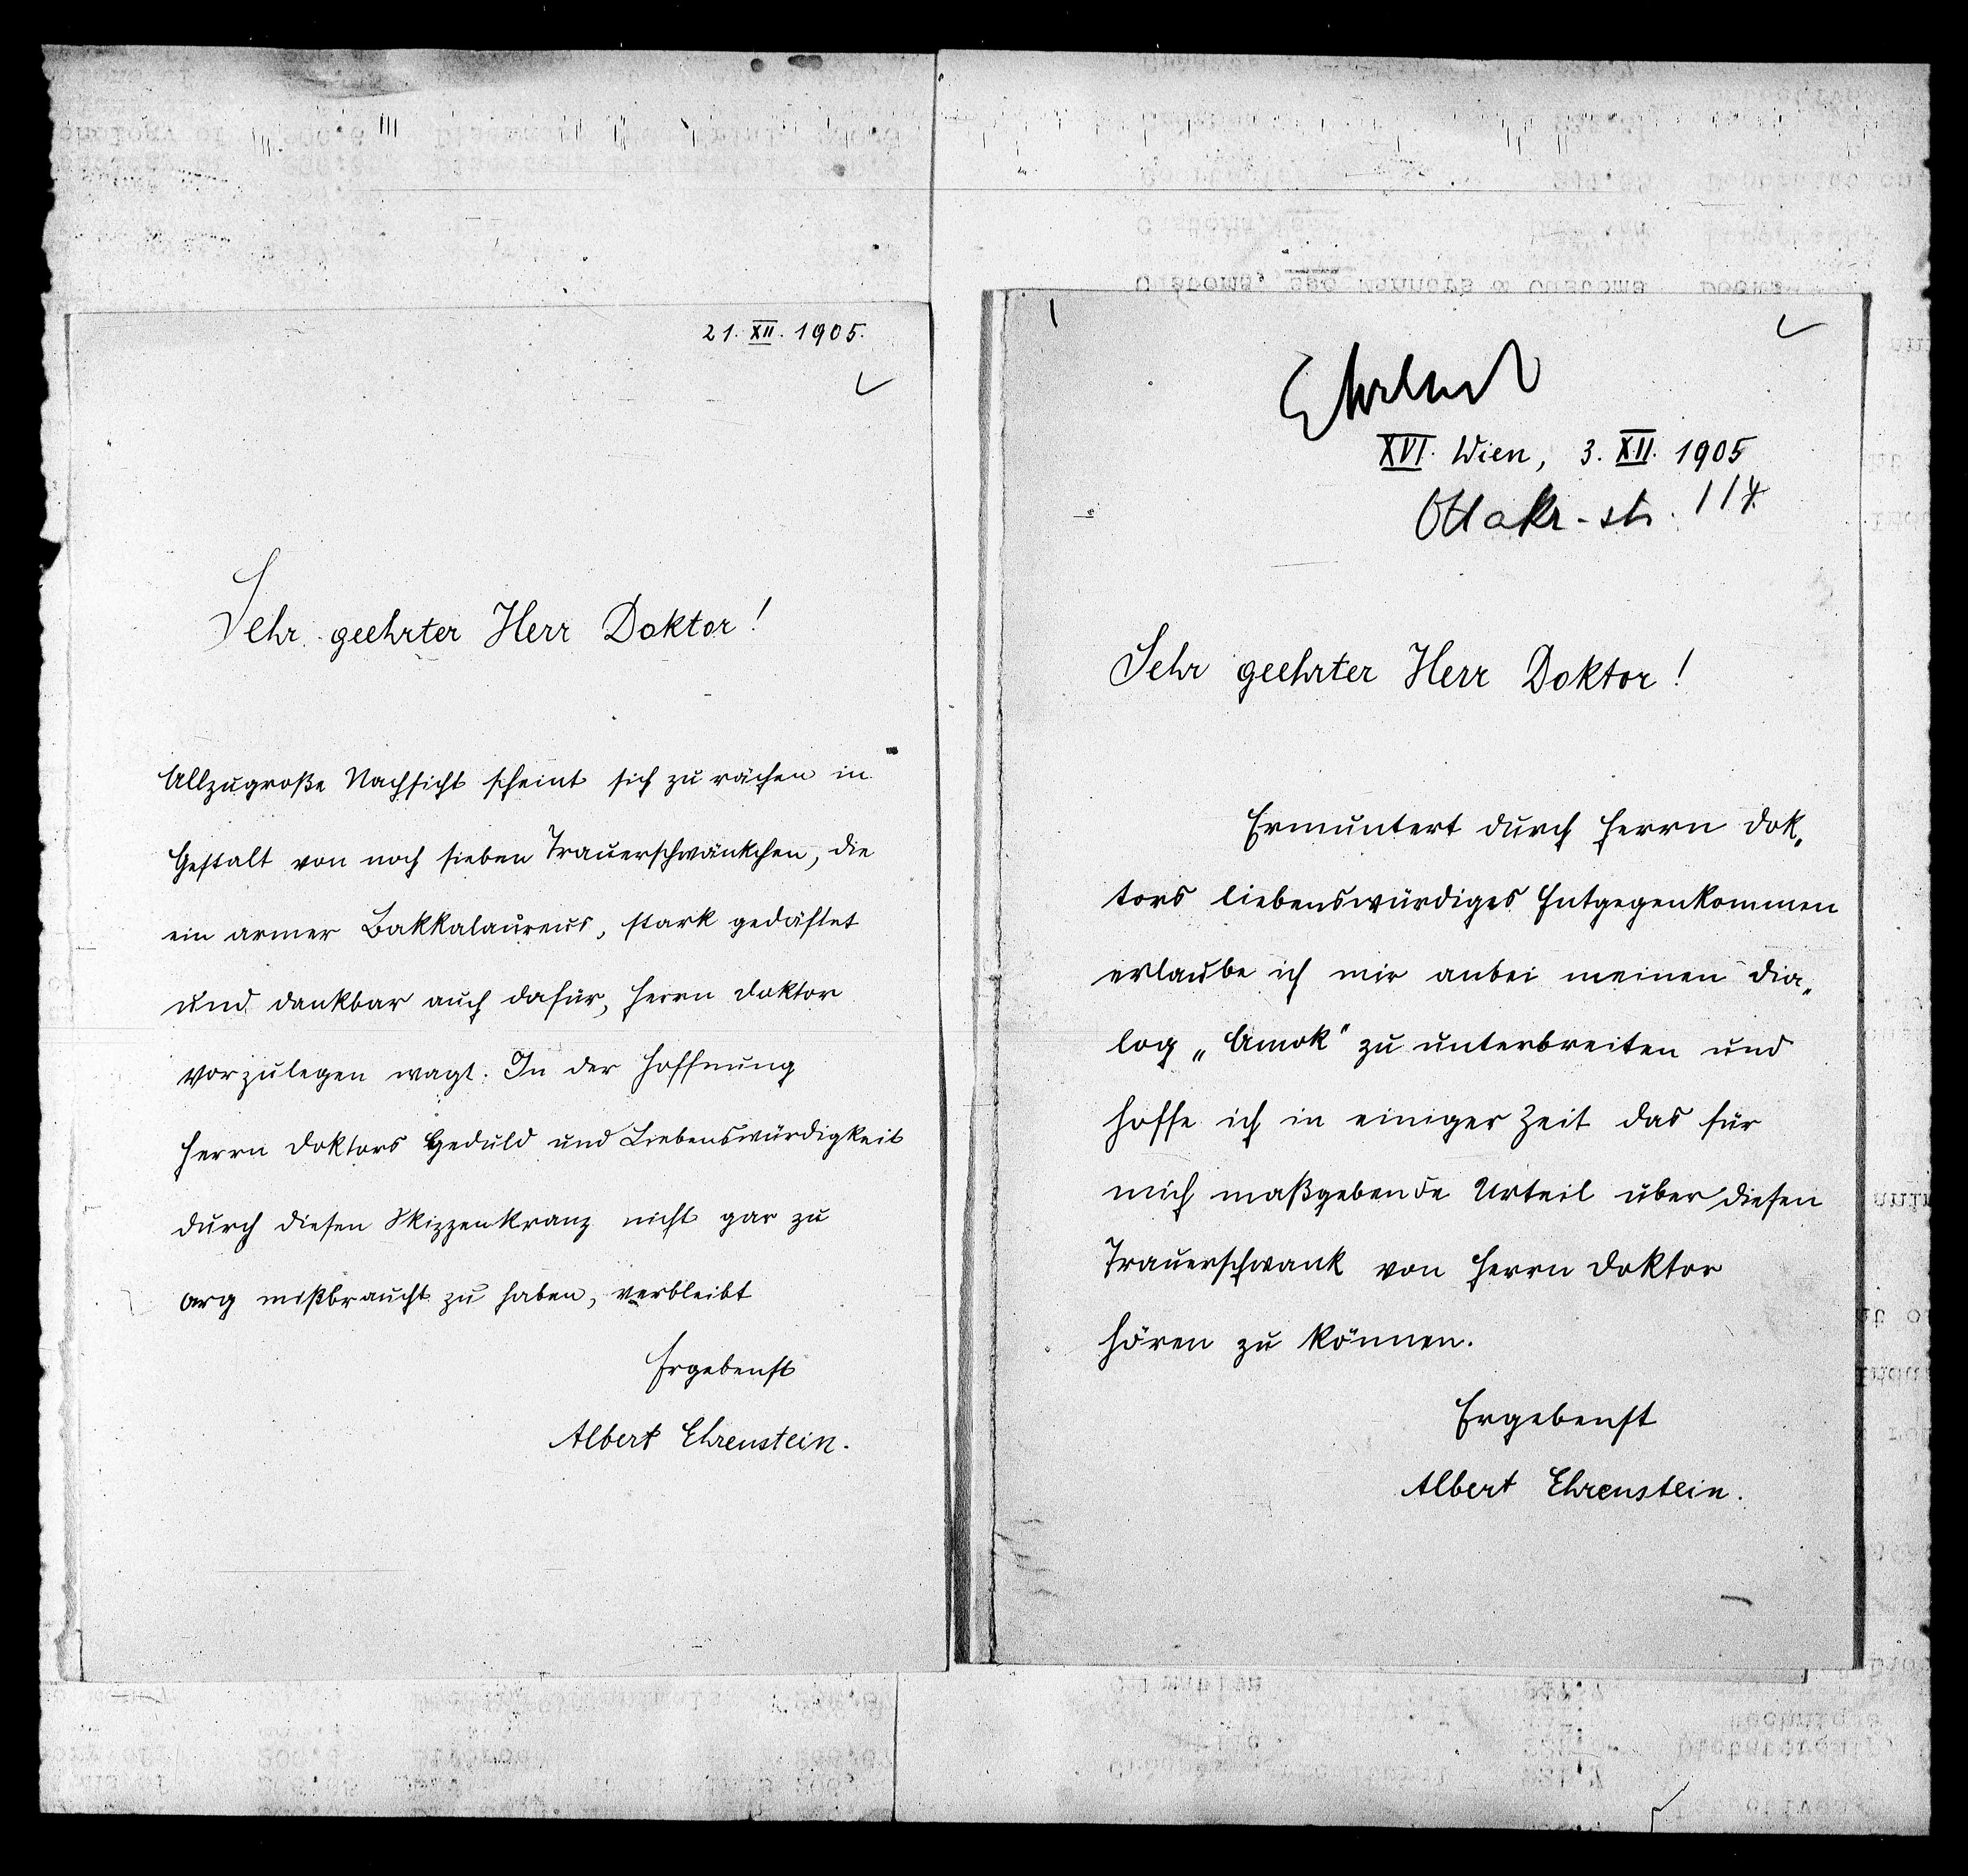 21. XII. 1905.
Sehr geehrter Herr Doktor!
Allzugroße Nachsicht scheint sich zu rächen in
Gestalt von noch sieben Trauerschwänkchen, die
ein armer Bakkalaureus, stark gedäftet
und dankbar auch dafür, Herrn Doktor
vorzulegen wagt. In der Hoffnung
Herrn Doktors Geduld und Liebenswürdigkeit
durch diesen Skizzenkranz nicht gar zu
arg mißbraucht zu haben, verbleibt
Ergebenst
Albert Ehrenstein.
XVI. Wien, 3. XII. 1905
Ottakr-str. 114
Sehr geehrter Herr Doktor!
Ermuntert durch Herrn Dok„
tors liebenswürdiges Entgegenkommen
erlaube ich mir anbei meinen Dia„
log „Amok" zu unterbreiten und
hoffe ich in einiger Zeit das für
mich maßgebende Urteil über diesen
Trauerschwank von Herrn Doktor
hören zu können.
Ergebenst
Albert Ehrenstein.